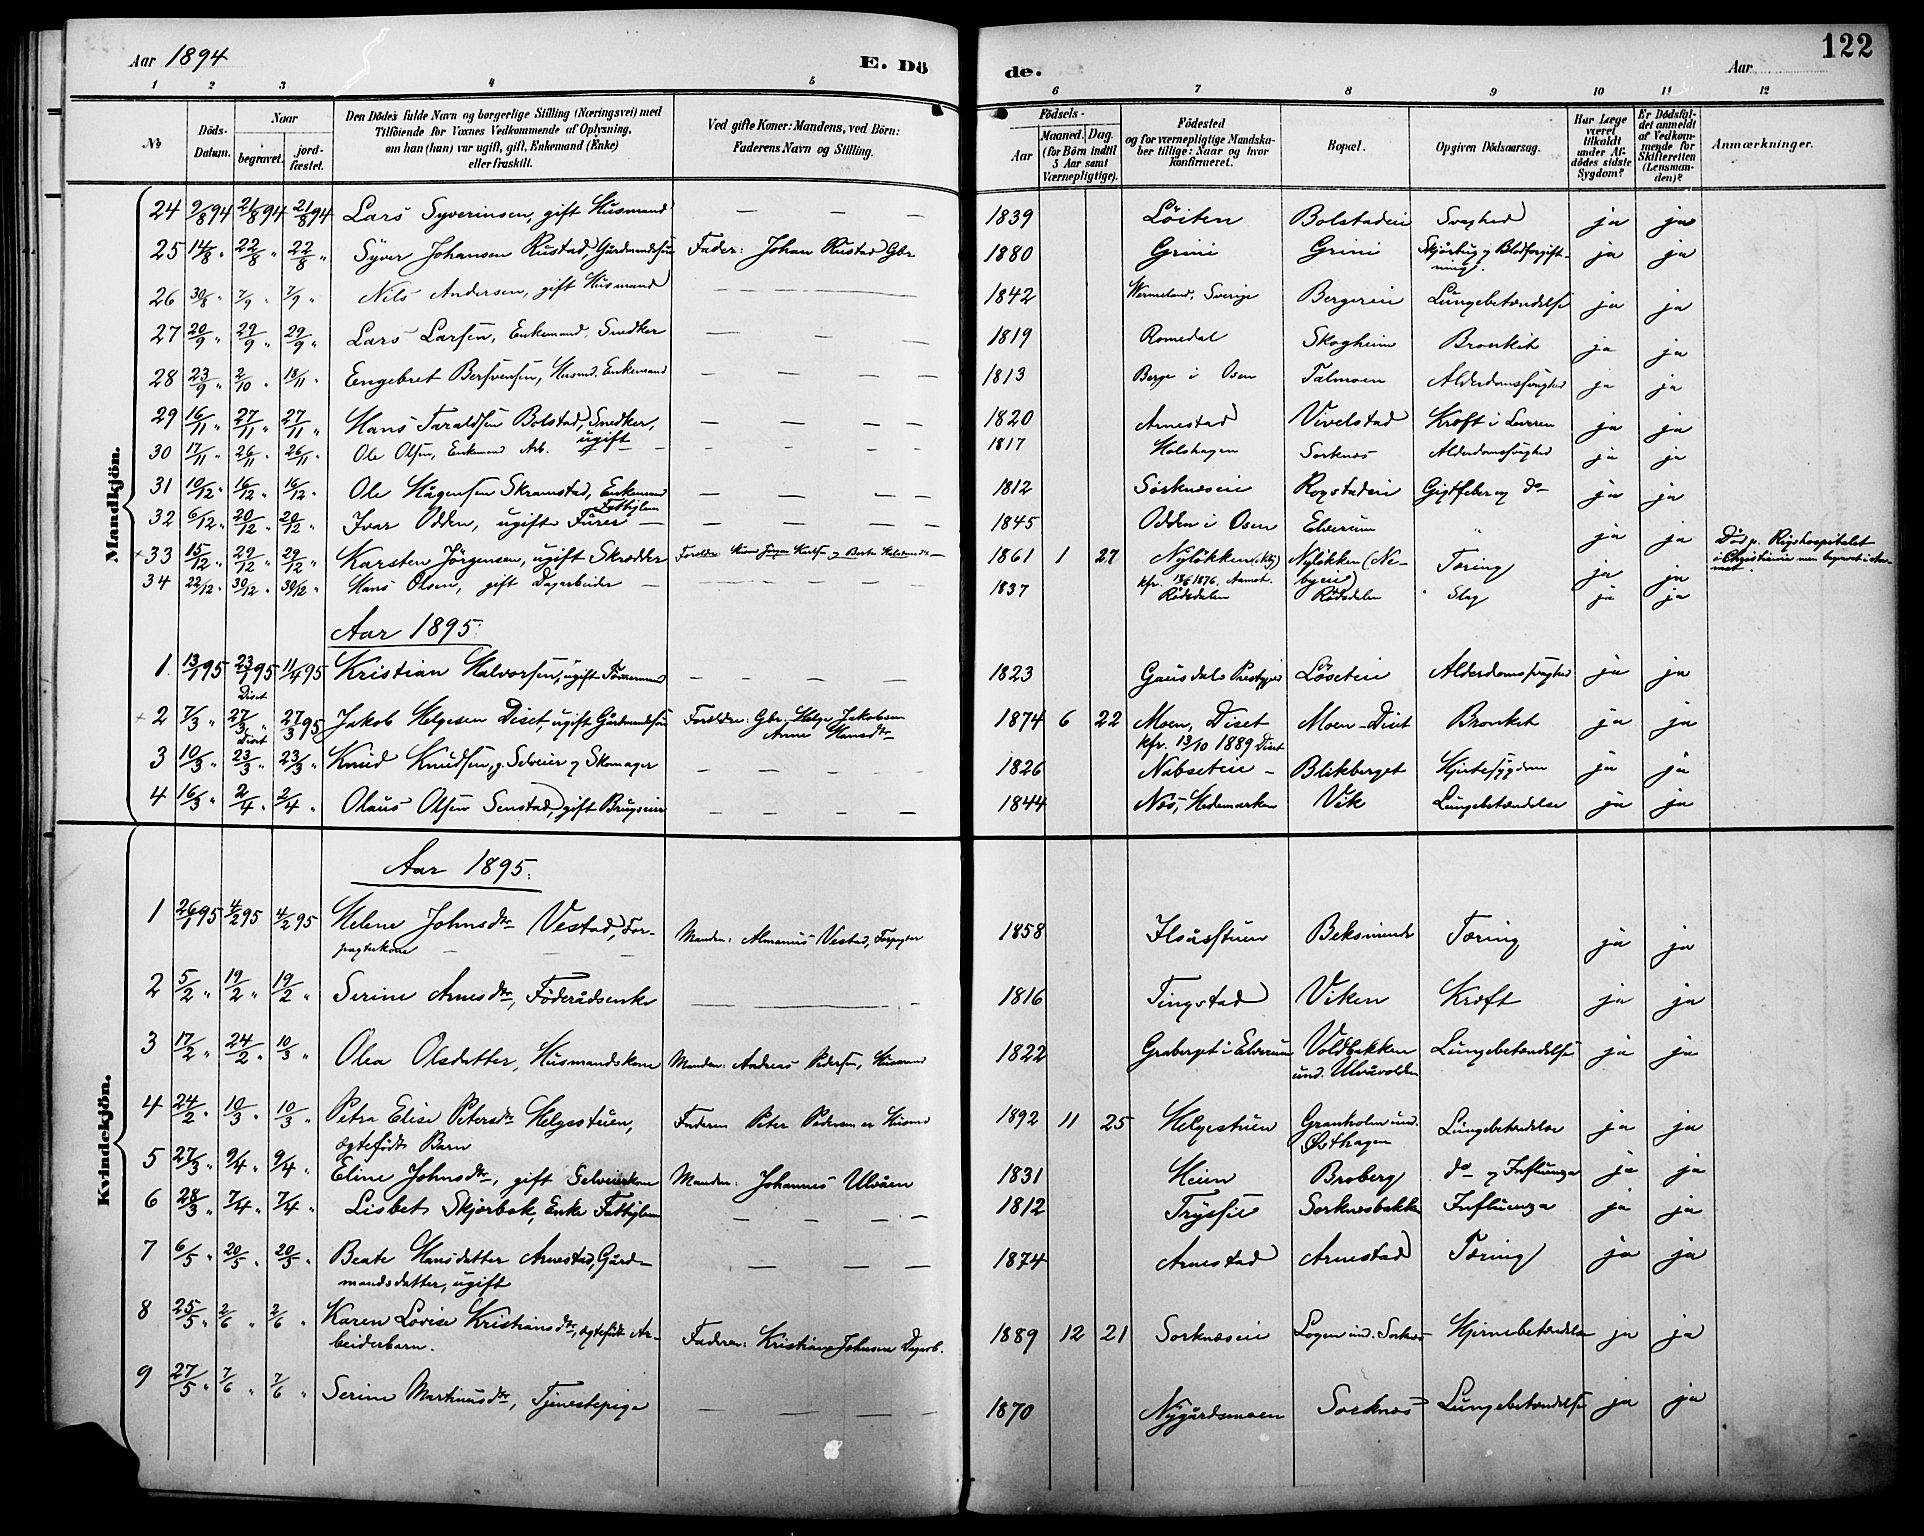 Aar 1894
E. Dö
de.
Aar
122
1 2 3 4 5 6 7 8 9 10 11 12
No
Döds-Datum.
Naar
begravet.
jord-fæstet.
Den Dödes fulde Navn og borgerlige Stilling (Næringsvei) med
Tilföiende for Voxnes Vedkommende af Oplysning,
om han (hun) var ugift, gift, Enkemand (Enke)
eller fraskilt.
Ved gifte Koner: Mandens, ved Börn:
Faderens Navn og Stilling.
Födsels-
Aar
Maaned. Dag.
(for Börn indtil
5 Aar samt
Værnepligtige).
Födested
og for værnepligtige Mandska-
ber tillige: Naar og hvor
konfirmeret.
Bopæl.
Opgiven Dödsaarsag.
Har Læge
været
tilkaldt
under Af-
dödes sidste
Sygdom?
Er Dödsfal-
det anmeldt
af Vedkom-
mende for
Skifteretten
(Lensman-
den)?
Anmærkninger.
Mandkjön.
24 9/8 94 21/8 94 21/8 94 Lars Syverinsen, gift Husmand — — — 1839 Löiten Bolstadeie Svaghed ja ja
25 14/8 " 22/8 " 22/8 " Syver Johansen Rustad, Gårdmandssön Fader: Johan Rustad Gbr 1880 Grini Grini Skjörbug og Blodforgift-
ning. ja ja
26 30/8 " 7/9 " 7/9 " Nils Andersen, gift Husmand 1842 Wermeland, Sverige Bergereie Lungebetændelse ja ja
27 20/9 29/9 " 29/9 " Lars Larsen, Enkemand, Snedker — — — 1819 Romedal Skogheim Bronkit ja ja
28 23/9 " 2/10 " 18/11 " Engebret Bersvensen, Husmd. Enkemand — — — — 1813 Berge i Osen Talmoen Alderdomssvaghed ja ja
29 16/11 " 27/11 " 27/11 " Hans Taraldsen Bolstad, Snedker,
ugift — — — — 1820 Arnestad Vivelstad Kræft i Leveren ja ja
30 17/11 " 26/11 " 26/11 " Ole Olsen, Enkemand Arb. — 1817 Holshagen Sorknæs Alderdomssvaghed ja ja
31 10/12 " 16/12 " 16/12 " Ole Hågensen Skramstad, Enkemand
Fattiglem — — — — 1812 Sorknæseie Rogstadeie Gigtfeber og do ja ja
32 6/12 " 20/12 " 20/12 " Ivar Odden, ugift Furer — — — — — 1845 Odden i Osen Elverum " ja ja
33 15/12 " 29/12 " 29/12 " Karsten Jörgensen, ugift Skrædder 1861 1 27 Nylökken
kfr. 18/6 1876, Aamot. Nylökken (Ne-
byeie) Tæring ja ja Död p. Rigshospitalet
i Christiania men begravet i Aa-
mot.
34 22/12 " 30/12 " 30/12 " Hans Olsen, gift Dagarbeider — 1837 Rödsdalen Rödsdalen Slag ja ja
Aar 1895:
1. 13/1 95 23/1 95 11/4 95 Kristian Halvorsen, ugift Tömmermand — — — — 1823 Gausdals Prestgjeld Löseteie Alderdomssvaghed ja ja
2 7/3 " Diset 27/3 " 27/3 95 Jakob Helgesen Diset, ugift Gårdmandssön Forældre: Gbr. Helge Jakobsen
Anne Hansdtr 1874 6 22 Moen, Diset
kfr. 13/10 1889 Diset Moen-Diset Bronkit ja ja
3 10/3 " Diset 23/3 " 23/3 " Knud Knudsen, g. Selveier og Skomager — — — — 1826 Nabseteie — Blikberget Hjertesygdom ja ja
4 16/3 " 2/4 " 2/4 " Olaus Olsen Senstad, gift Brugseier — — — — 1844 Næs, Hedemarken Vik Lungebetændelse ja ja
Kvindekjön.
Aar 1895:
1 26/1 95 4/2 95 4/2 95 Helene Johnsdtr Vestad, For-
pagterkone — — — Manden: Almanus Vestad, Forpagter 1858 Ilsåsstuen Beksminde Tæring ja ja
2 5/2 " 19/2 " 19/2 " Serine Arnesdtr, Föderådsenke 1816 Tingstad Viken Kræft ja ja
3 17/2 " 24/2 " 10/3 " Olea Olsdatter, Husmandskone Manden: Andreas Pedersen, Husmand 1822 Graberget i Elverum Voldbakken
und. Ulvåvolden Lungebetændelse ja ja
4 24/2 " 10/3 " 10/3 " Petra Elise Petersdtr Helgestuen,
ægtefödt Barn Faderen Peter Pedersen er Husmd 1892 11 25 Helgestuen Granholm und.
Östhagen Lungebetændelse ja ja
5 27/3 " 9/4 " 9/4 " Eline Johnsdtr, gift Selveierkone Manden: Johannes Ulvåen 1831 Heim Broberg do og Influenza ja ja
6 28/3 " 7/4 " 7/4 " Lisbet Skjærbæk, Enke Fattiglem — — — — 1812 Trysil Sorknesbakken Influenza ja ja
7 6/5 " 20/5 " 20/5 " Beate Hansdatter Arnestad, Gård-
mandsdatter, ugift — — — — 1874 Arnestad Arnestad Tæring ja ja
8 25/5 " 2/6 " 2/6 " Karen Lovise Kristiansdtr, ægtefödt Ar-
beiderbarn. Faderen: Kristian Johnsen Dagarb. 1889 12 21 Sorknæseie Logen und. Sorknæs Hjernebetændelse ja ja
9 27/5 " 7/6 " 7/6 " Serine Martinusdtr, Tjenestepige — — — — 1870 Nygårdsmoen Sorknæs Lungebetændelse ja ja